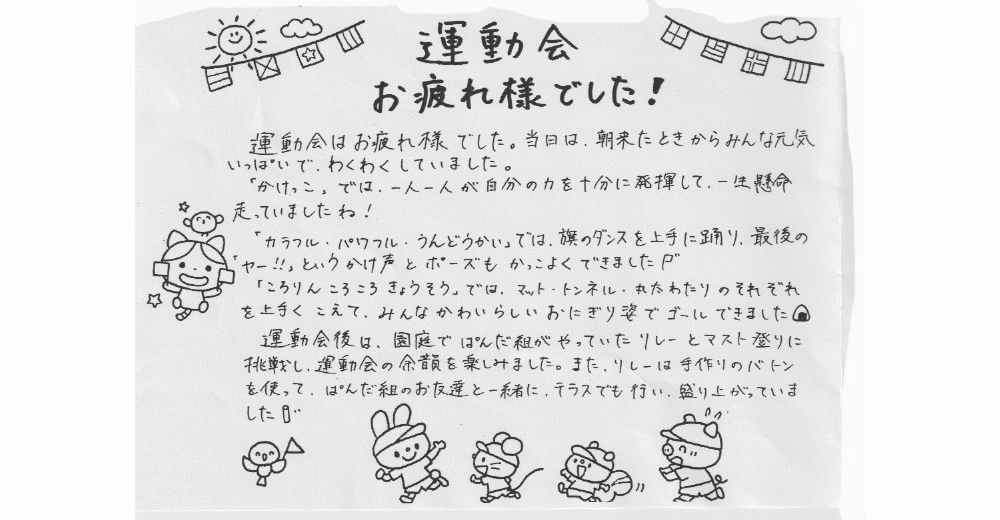 運動会
お疲れ様でした!
運動会はお疲れ様でした。当日は、朝来たときからみんな元気
いっぱいで、わくわくしていました。
「かけっこ」では、一人一人が自分の力を十分に発揮して、一生懸命
走っていましたね!
「カラフル・パワフル・うんどうかい」では、旗のダンスを上手に踊り、最後の
「ヤー!!」というかけ声とポーズもかっこよくできました
「ころりんころころきょうそう」では、マット・トンネル・丸太わたりのそれぞれ
を上手くこえて、みんなかわいらしいおにぎり姿でゴールできました
運動会後は、園庭でぱんだ組がやっていたリレーとマスト登りに
挑戦し、運動会の余韻を楽しみました。また、リレーは手作りのバトン
を使って、ぱんだ組のお友達と一緒に、テラスでも行い、盛り上がっていま
した